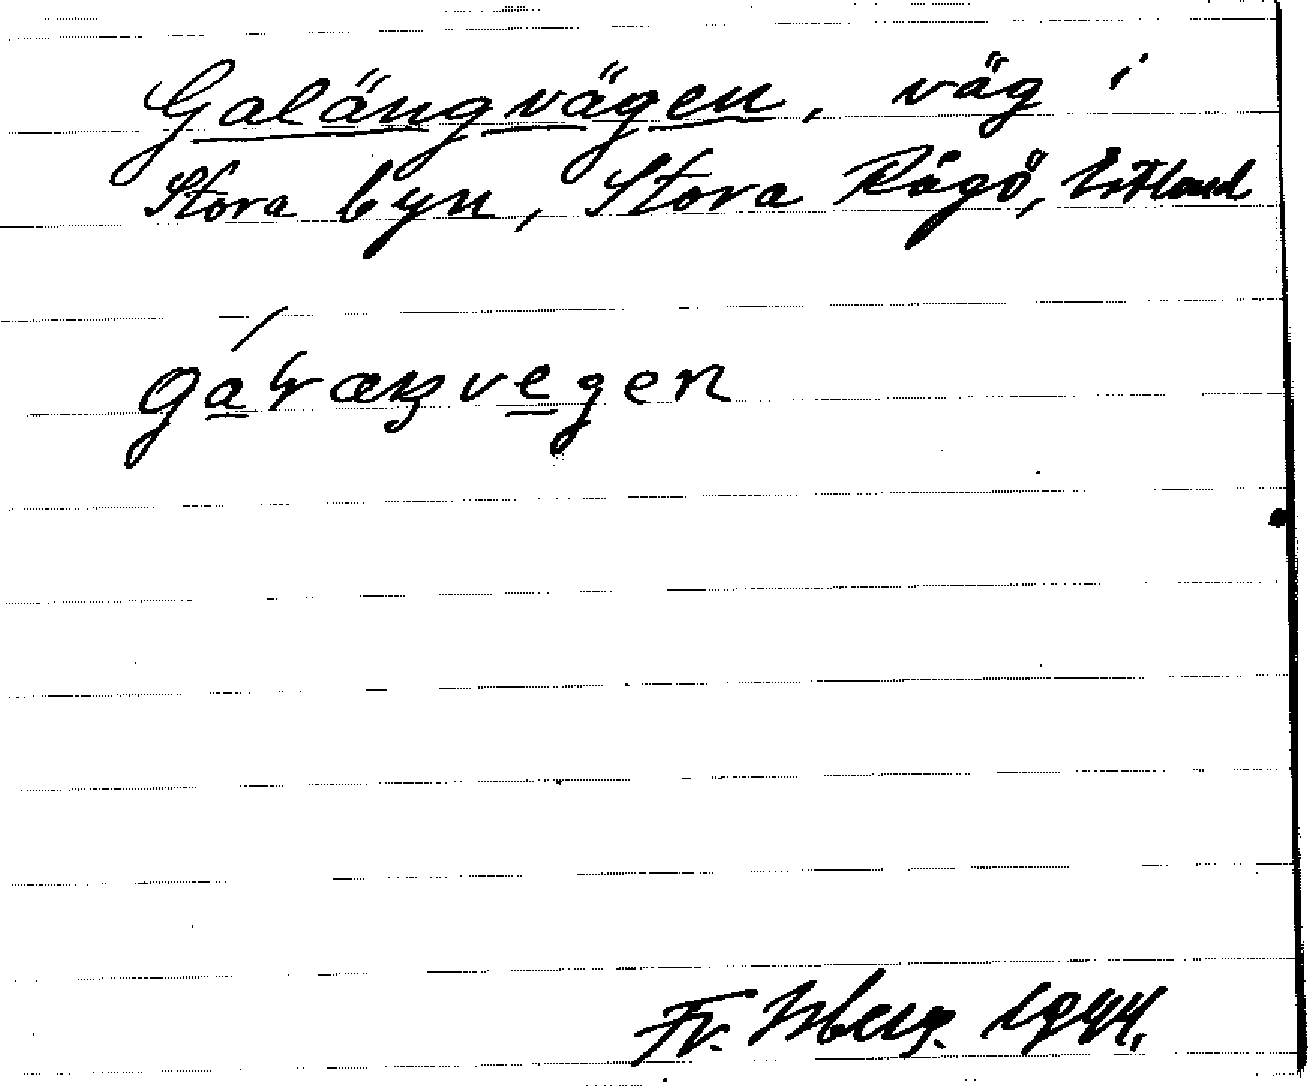 Galängvägen, väg i
Stora byn, Stora Rågö, Estland
Fr. Isberg. 1944.